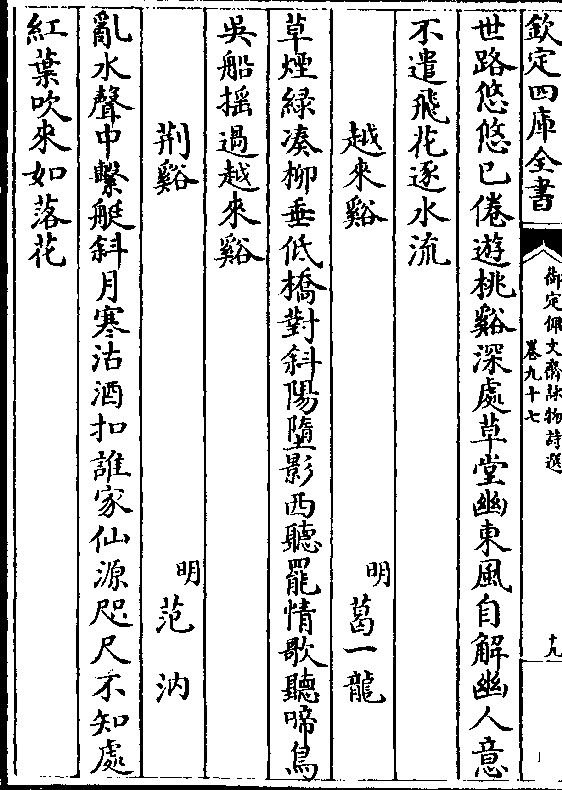 欽定四庫全書
御定佩文齋詠物詩選
卷九十七
十九
世路悠悠已倦遊桃谿深處草堂幽東風自解幽人意
不遣飛花逐水流
越來谿
明
葛一龍
草煙綠湊柳垂低橋對斜陽墮影西聽罷情歌聽啼鳥
吳船揺過越來谿
荆谿
明
范汭
亂水聲中繫艇斜月寒沽酒扣誰家仙源咫尺不知處
紅葉吹來如落花